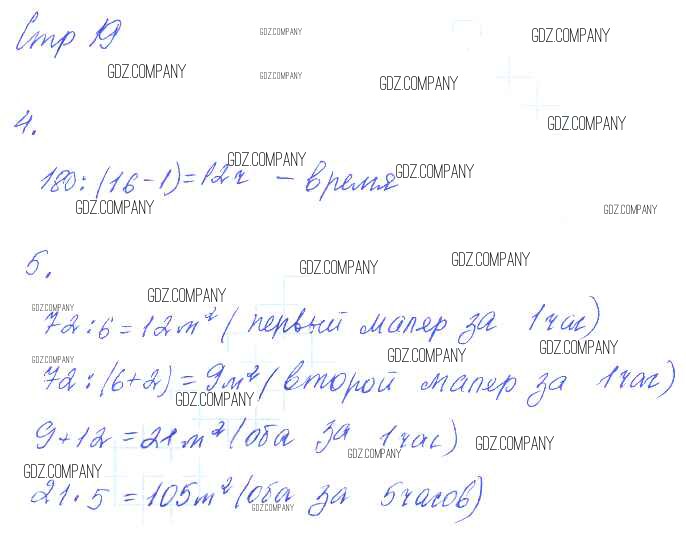 Стр 19
GDZ.COMPANY
GDZ.COMPANY
GDZ.COMPANY
GDZ.COMPANY
GDZ.COMPANY
4.
GDZ.COMPANY
GDZ.COMPANY
GDZ.COMPANY
180:(16-1)=12ч - время
GDZ.COMPANY
GDZ.COMPANY
5.
GDZ.COMPANY
GDZ.COMPANY
GDZ.COMPANY
GDZ.COMPANY
72:6=12м² (первый маляр за 1 час)
GDZ.COMPANY
GDZ.COMPANY
GDZ.COMPANY
72:(6+2)=9м² (второй маляр за 1 час)
GDZ.COMPANY
9+12=21м² (оба за 1 час)
GDZ.COMPANY
GDZ.COMPANY
GDZ.COMPANY
21·5=105м² (оба за 5 часов)
GDZ.COMPANY